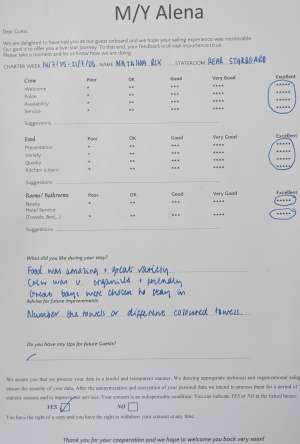 M/Y Alena
Dear Guest,
We are delighted to have had you as our guest onboard and we hope your sailing experience was memorable.
Our goal is to offer you a five-star journey. To that end, your feedback is of vital importance to us.
Please take a moment and let us know how we are doing.
CHARTER WEEK 14/7/ - 21/7/ NAME STATEROOM REAR STARBOARD
Crew Poor OK Good Very Good Excellent
Welcome * ** *** **** *****
Polite * ** *** **** *****
Availability * ** *** **** *****
Service * ** *** **** *****
Suggestions
Food Poor OK Good Very Good Excellent
Presentation * ** *** **** *****
Variety * ** *** **** *****
Quality * ** *** **** *****
* ** *** **** *****
Suggestions
Rooms/ Bathrooms Poor OK Good Very Good Excellent
* ** *** **** *****
Hotel Service
(Towels, Bed,..) * ** *** **** *****
Suggestions
What did you like during your stay?
Food was amazing + great variety
Crew was v. organised + friendly
Great bays were chosen to stay in
Advise for future improvements
Number the towels or different coloured towels
Do you have any tips for future Guests?
We assure you that we process your data in a lawful and transparent manner. We develop appropriate technical and organizational
ensure the security of your data. After the anonymization and encryption of your personal data we intend to process them for a period of
statistic reasons and to improve our services. Your consent is an indispensable condition. You can indicate YES or NO at the ticked boxes:
YES NO
You have the right of a copy and you have the right to withdraw your consent at any time.
Thank you for your cooperation and we hope to welcome you back very soon!